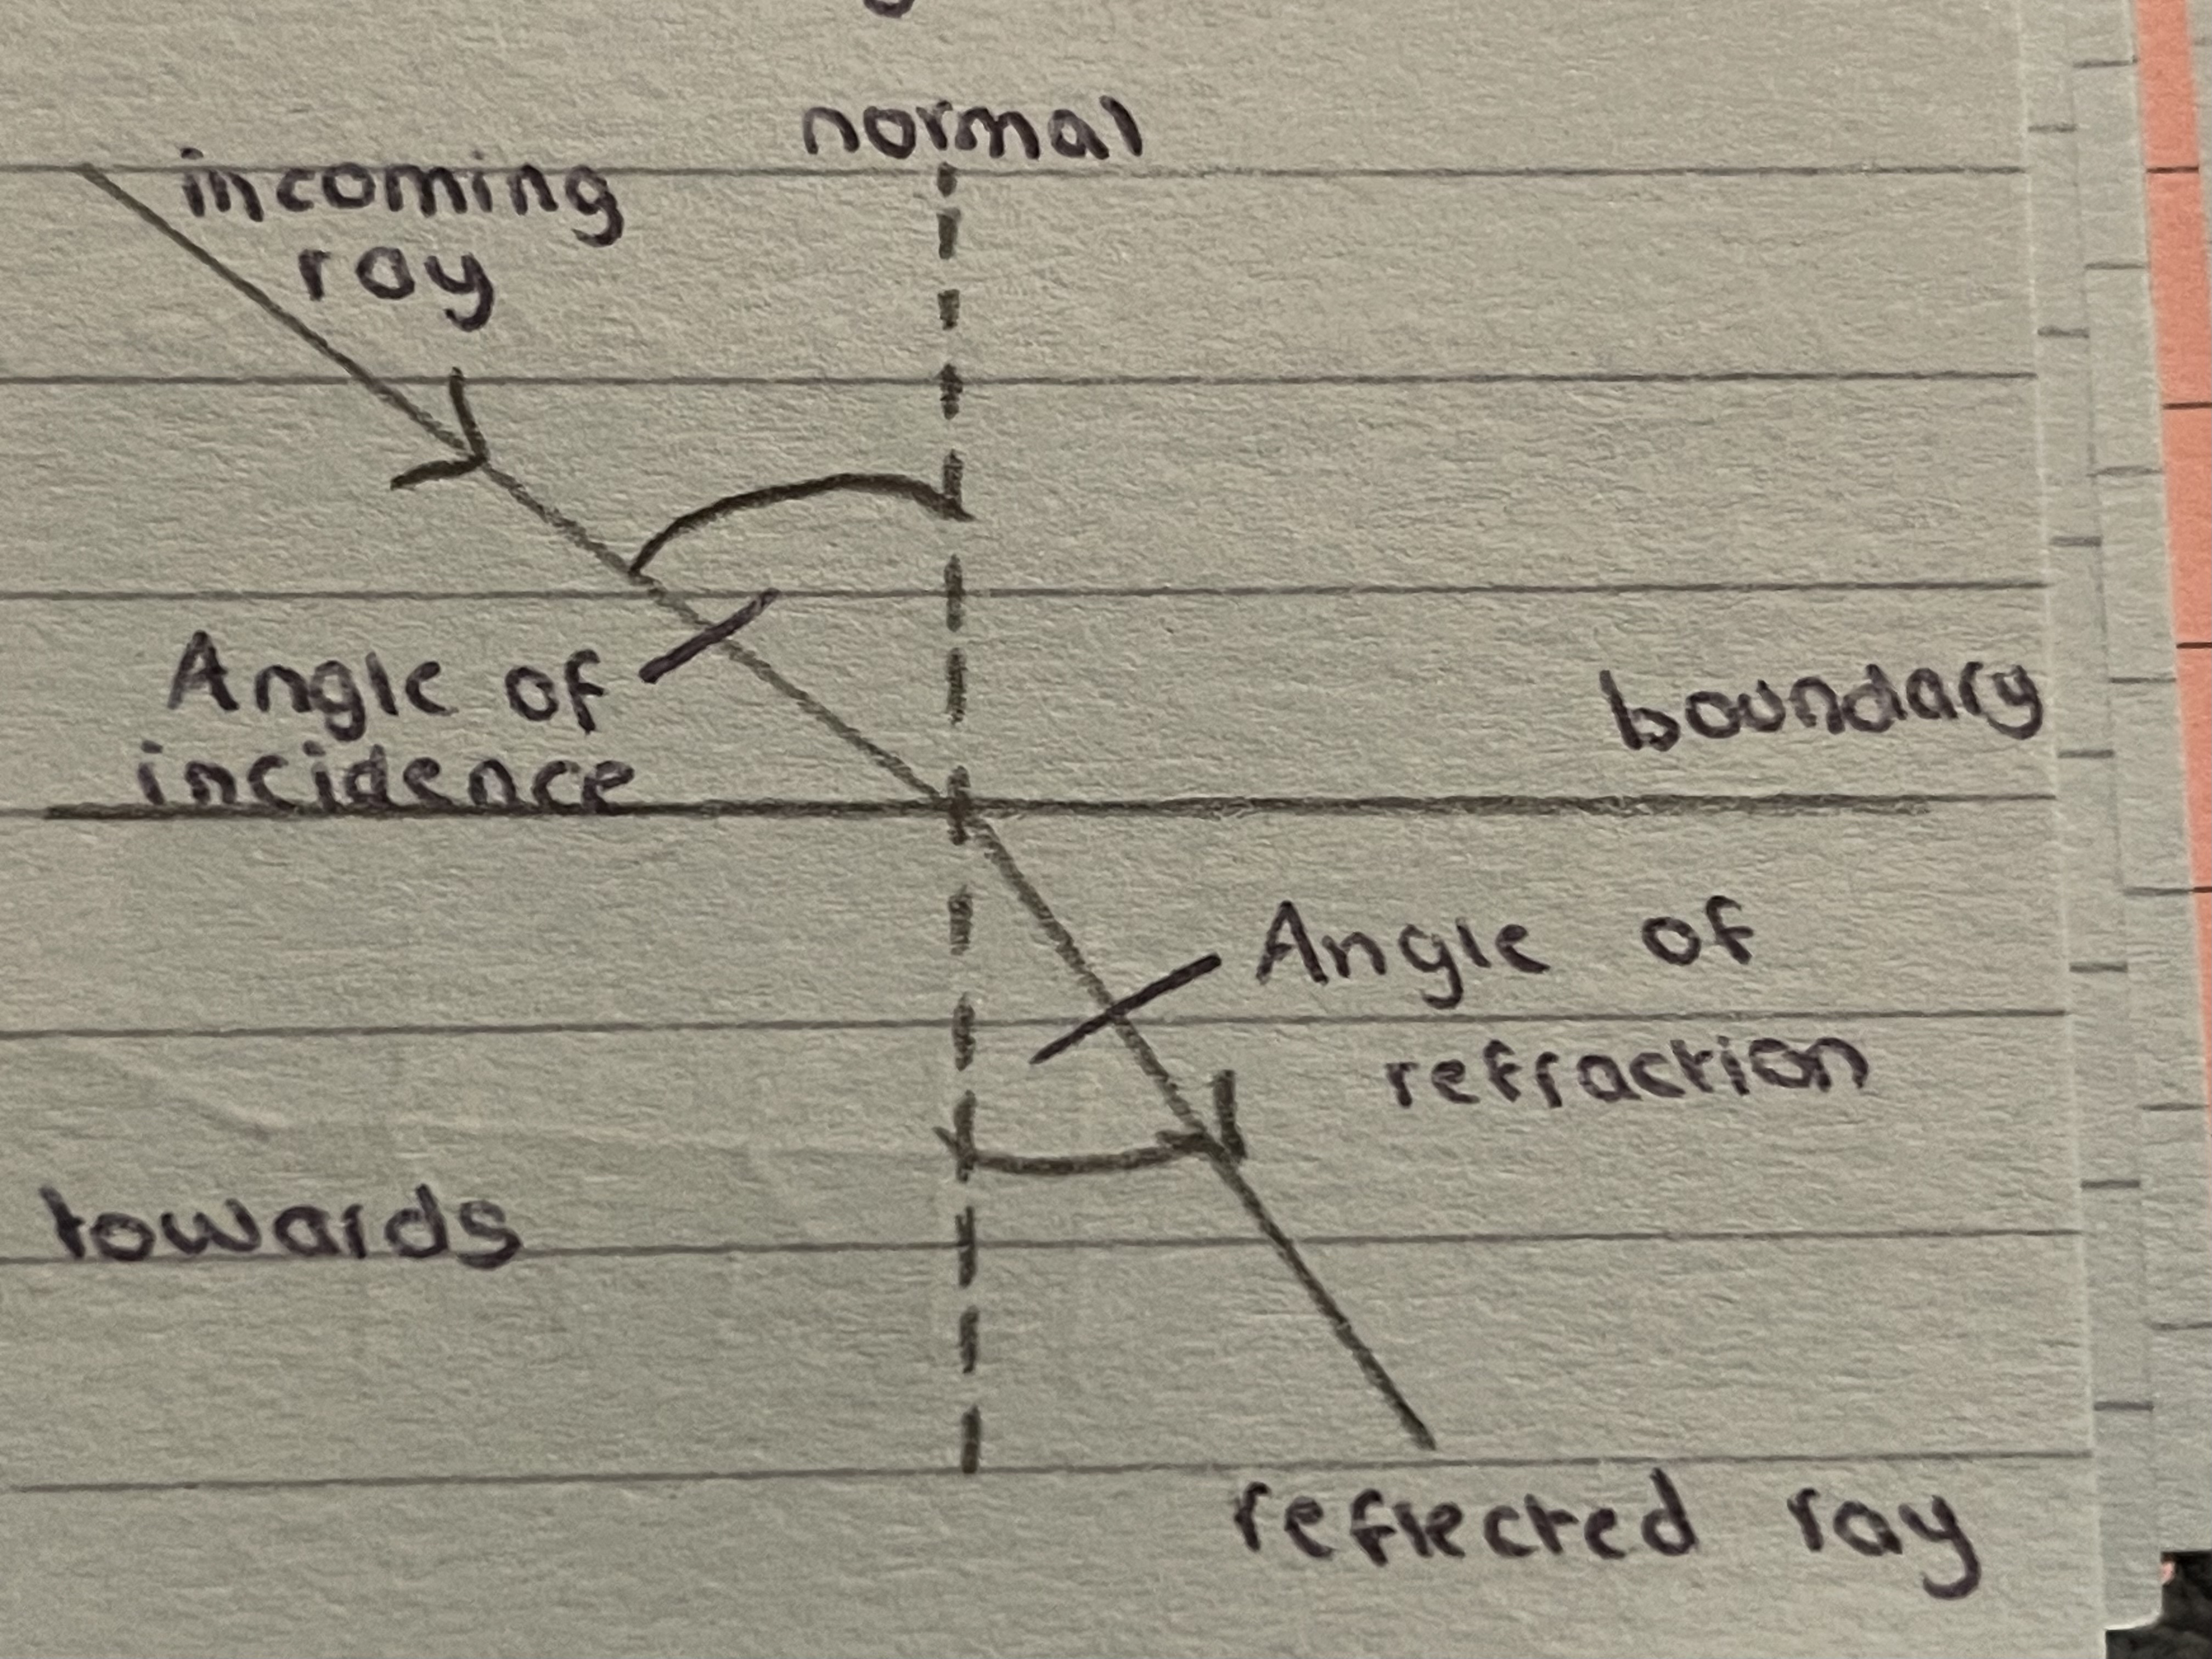 normal
incoming
ray
Angle of
incidence
boundary
Angle of
refraction
towards
reflected ray